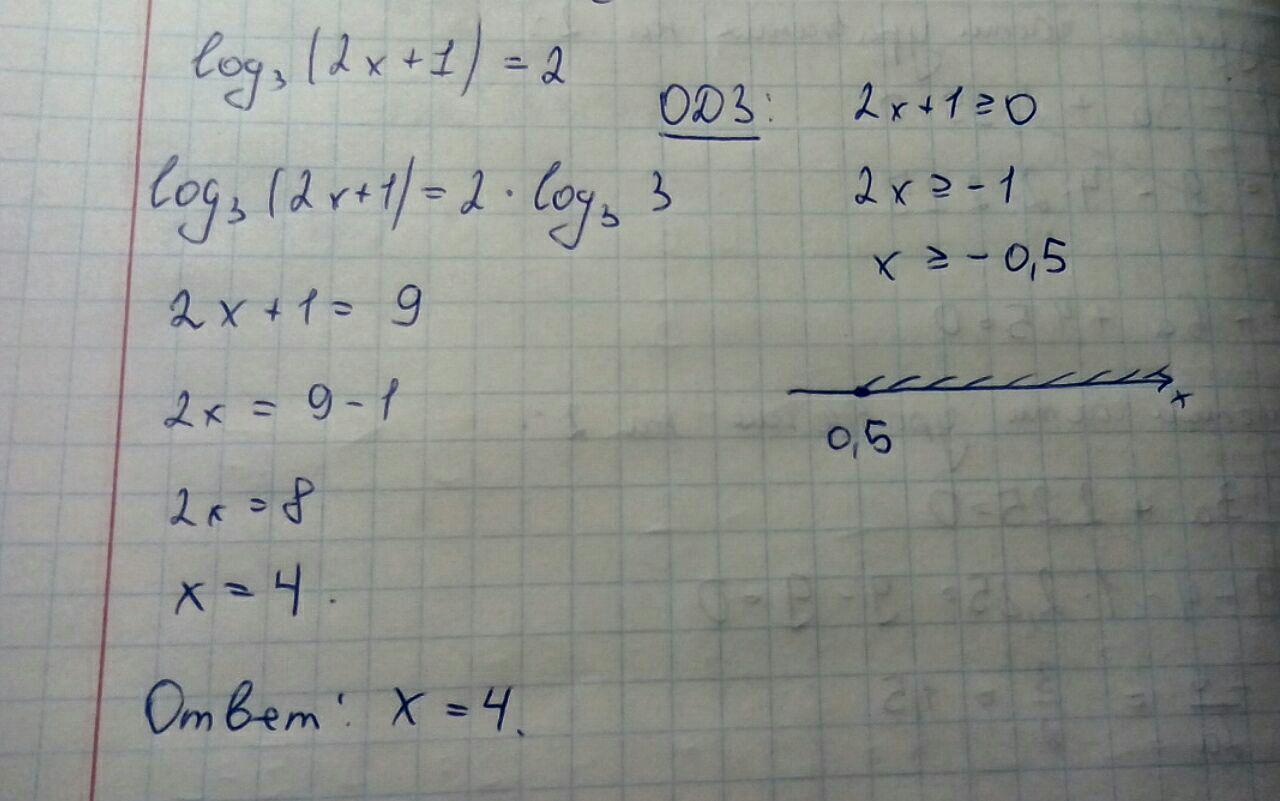 log₃ (2x+1) = 2
ОДЗ: 2x+1 ≥ 0
2x ≥ -1
x ≥ -0,5
x
0,5
log₃ (2x+1) = 2 · log₃ 3
2x + 1 = 9
2x = 9 - 1
2x = 8
x = 4.
Ответ: x = 4.